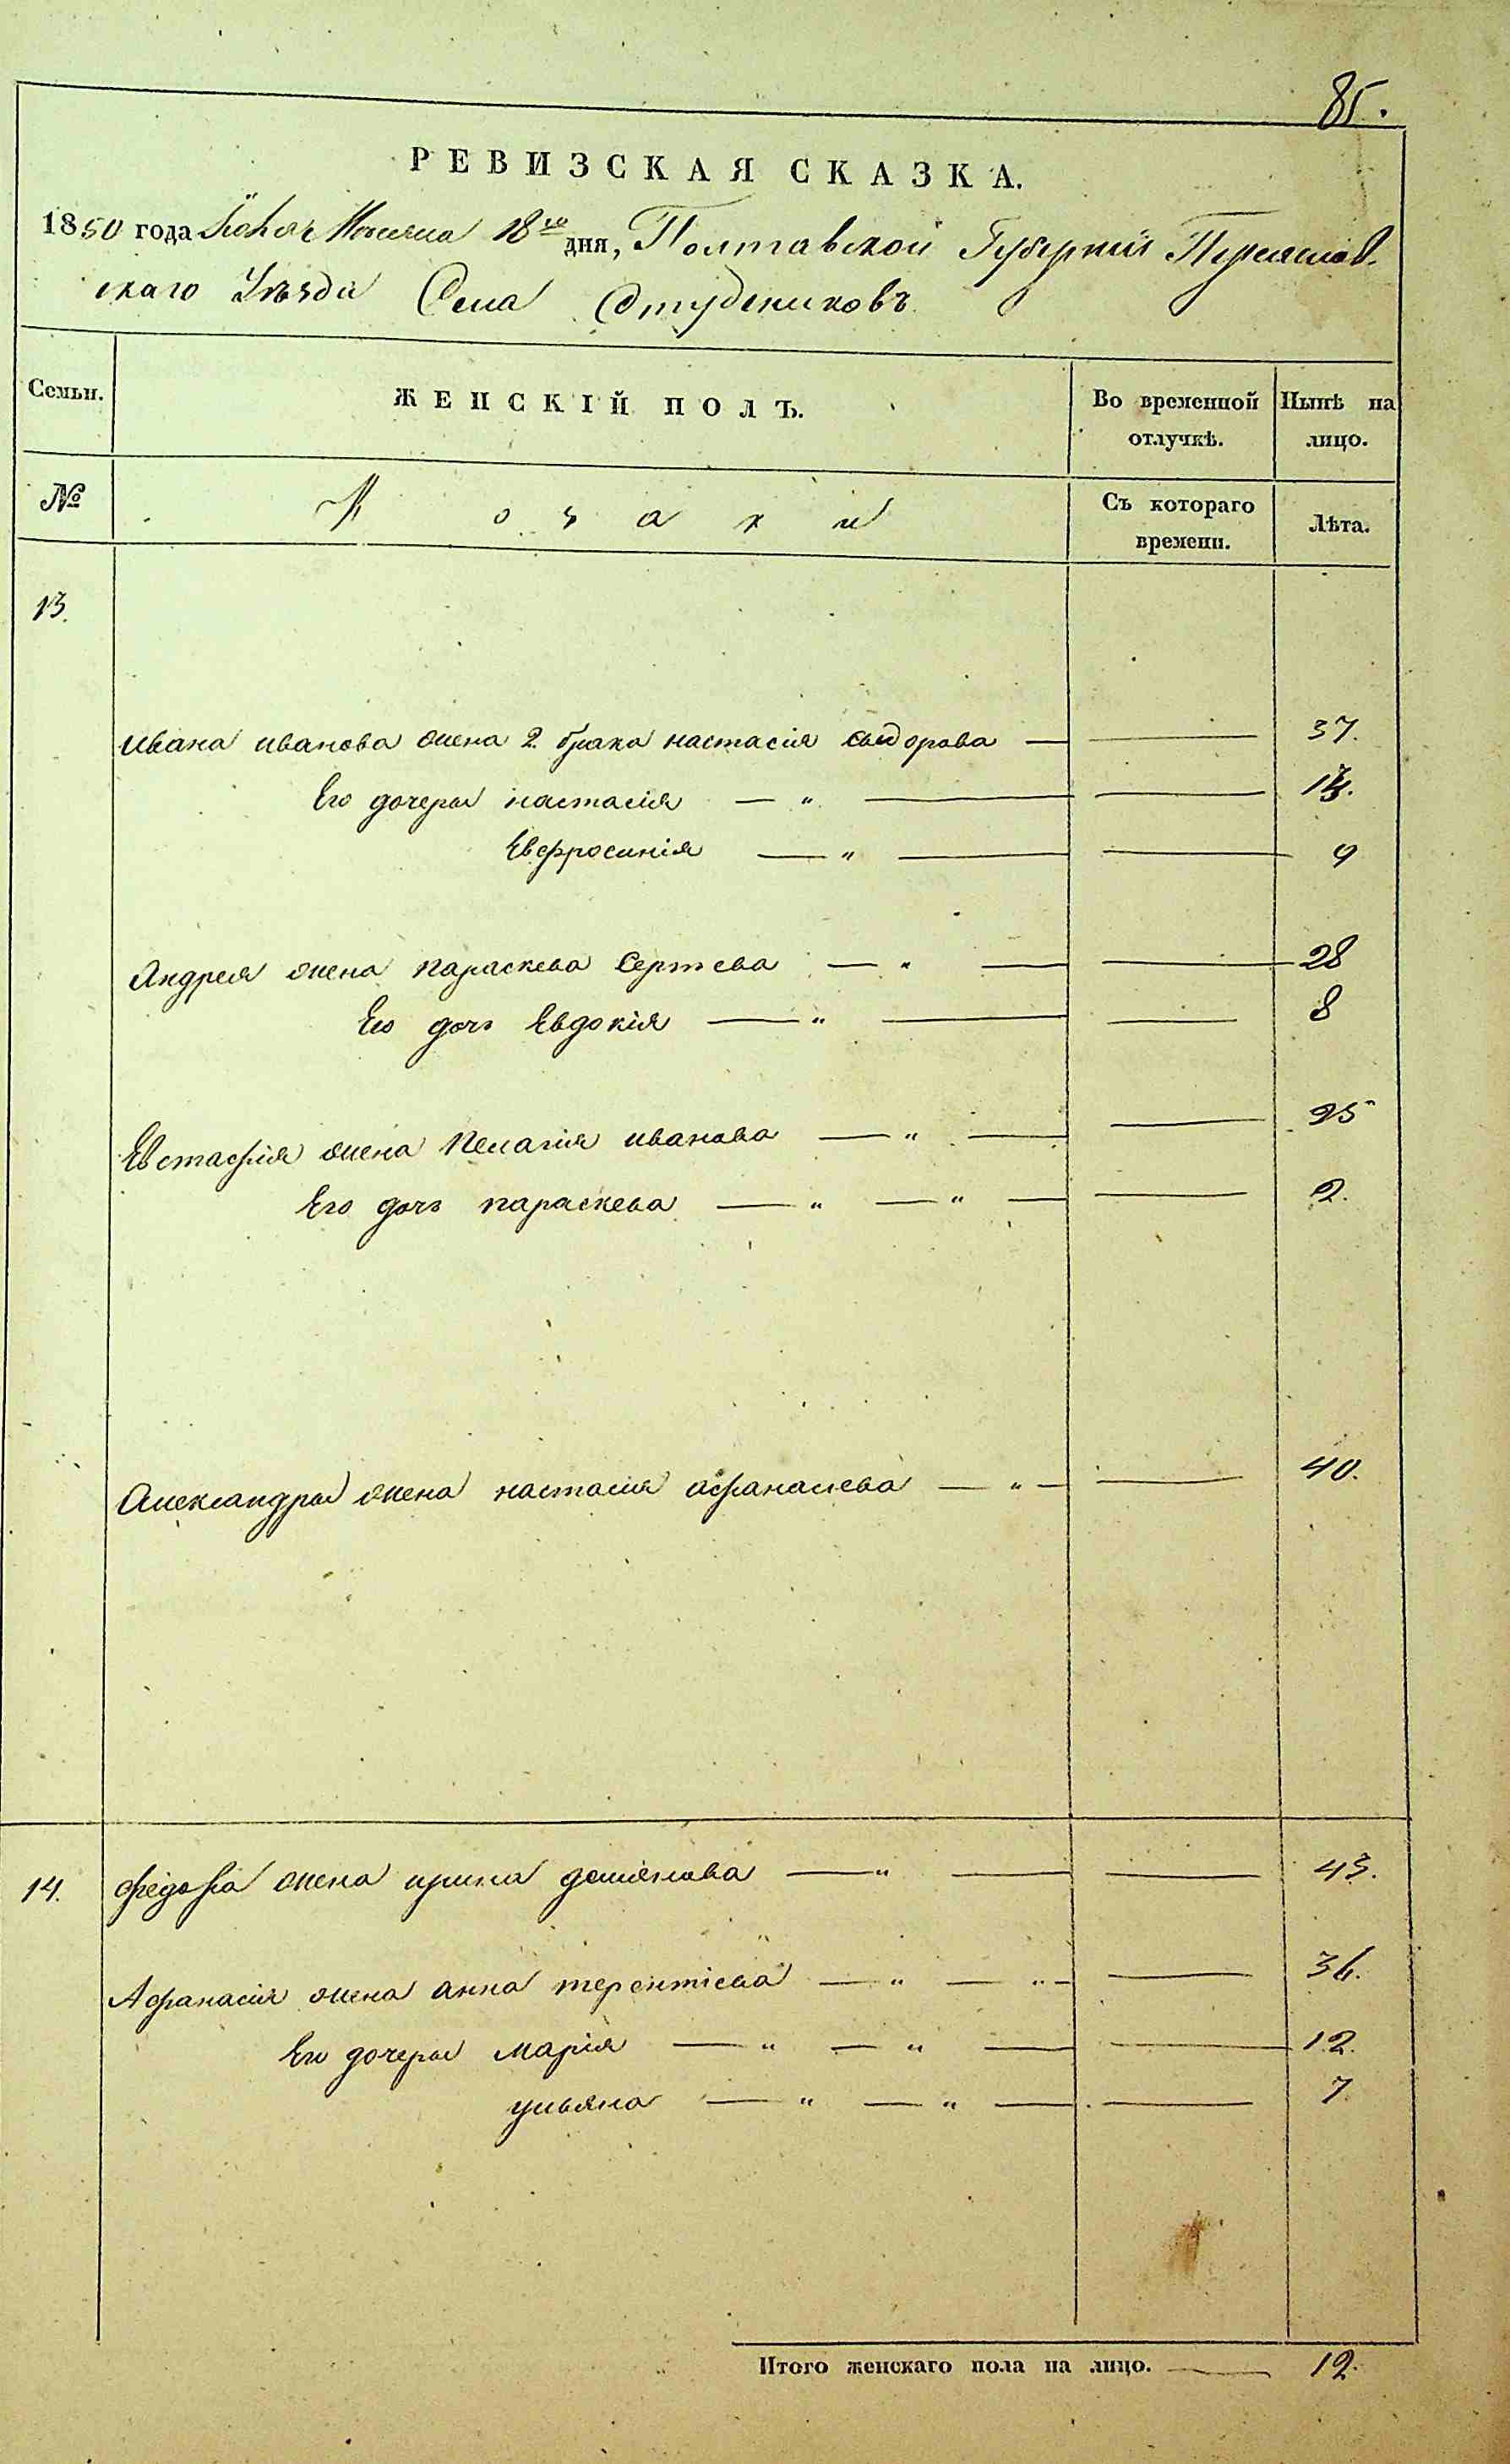 85.
РЕВИЗСКАЯ СКАЗКА.
1850 года Ноября 18го дня, Полтавской Губерніи Переяслов-
скаго Уѣзда Села Студениковъ
Семьи. ЖЕНСКІЙ ПОЛЪ. Во временной отлучкѣ. Нынѣ на лицо.
№ Козаки Съ котораго времени. Лѣта.
13.
Ивана иванова жена 2. брака настасія сыдорова 37.
Его дочеры настасія — "
Евфросинія — " 9
Андрея жена параскева Сергѣева — " 28
Его дочь Евдокія — " 8
Евстафія жена пелагія иванова — " 25
Его дочь параскева — " — " 2.
Александры жена настасія афанасіева — " 40.
14. федора жена ирина демянова — " 43.
Афанасія жена анна терентіева — " — " 36.
Его дочеры марія — " — " 12.
ульяна — " — " 7
Итого женскаго пола на лицо. 12.